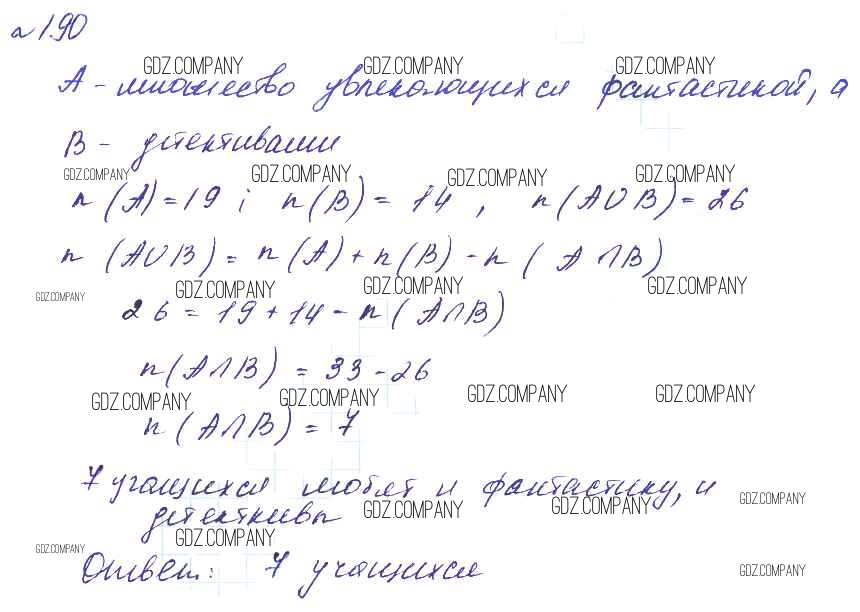 № 1.90
GDZ.COMPANY GDZ.COMPANY GDZ.COMPANY
A - множество увлекающихся фантастикой, а
B - детективами
GDZ.COMPANY GDZ.COMPANY GDZ.COMPANY GDZ.COMPANY
n(A)=19; n(B)=14, n(A∪B)=26
n(A∪B)=n(A)+n(B)-n(A∩B)
GDZ.COMPANY GDZ.COMPANY GDZ.COMPANY GDZ.COMPANY
26=19+14-n(A∩B)
n(A∩B)=33-26
GDZ.COMPANY GDZ.COMPANY GDZ.COMPANY GDZ.COMPANY
n(A∩B)=7
7 учащихся любят и фантастику, и
GDZ.COMPANY GDZ.COMPANY GDZ.COMPANY
детективы
GDZ.COMPANY GDZ.COMPANY
Ответ: 7 учащихся
GDZ.COMPANY